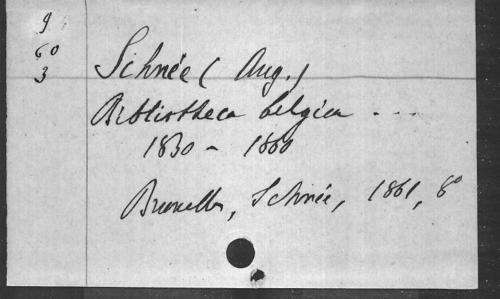 9
60
3
Schnée (Aug.)
Bibliotheca belgica ...
1830 - 1860
Bruxelles, Schnée, 1861, 8°